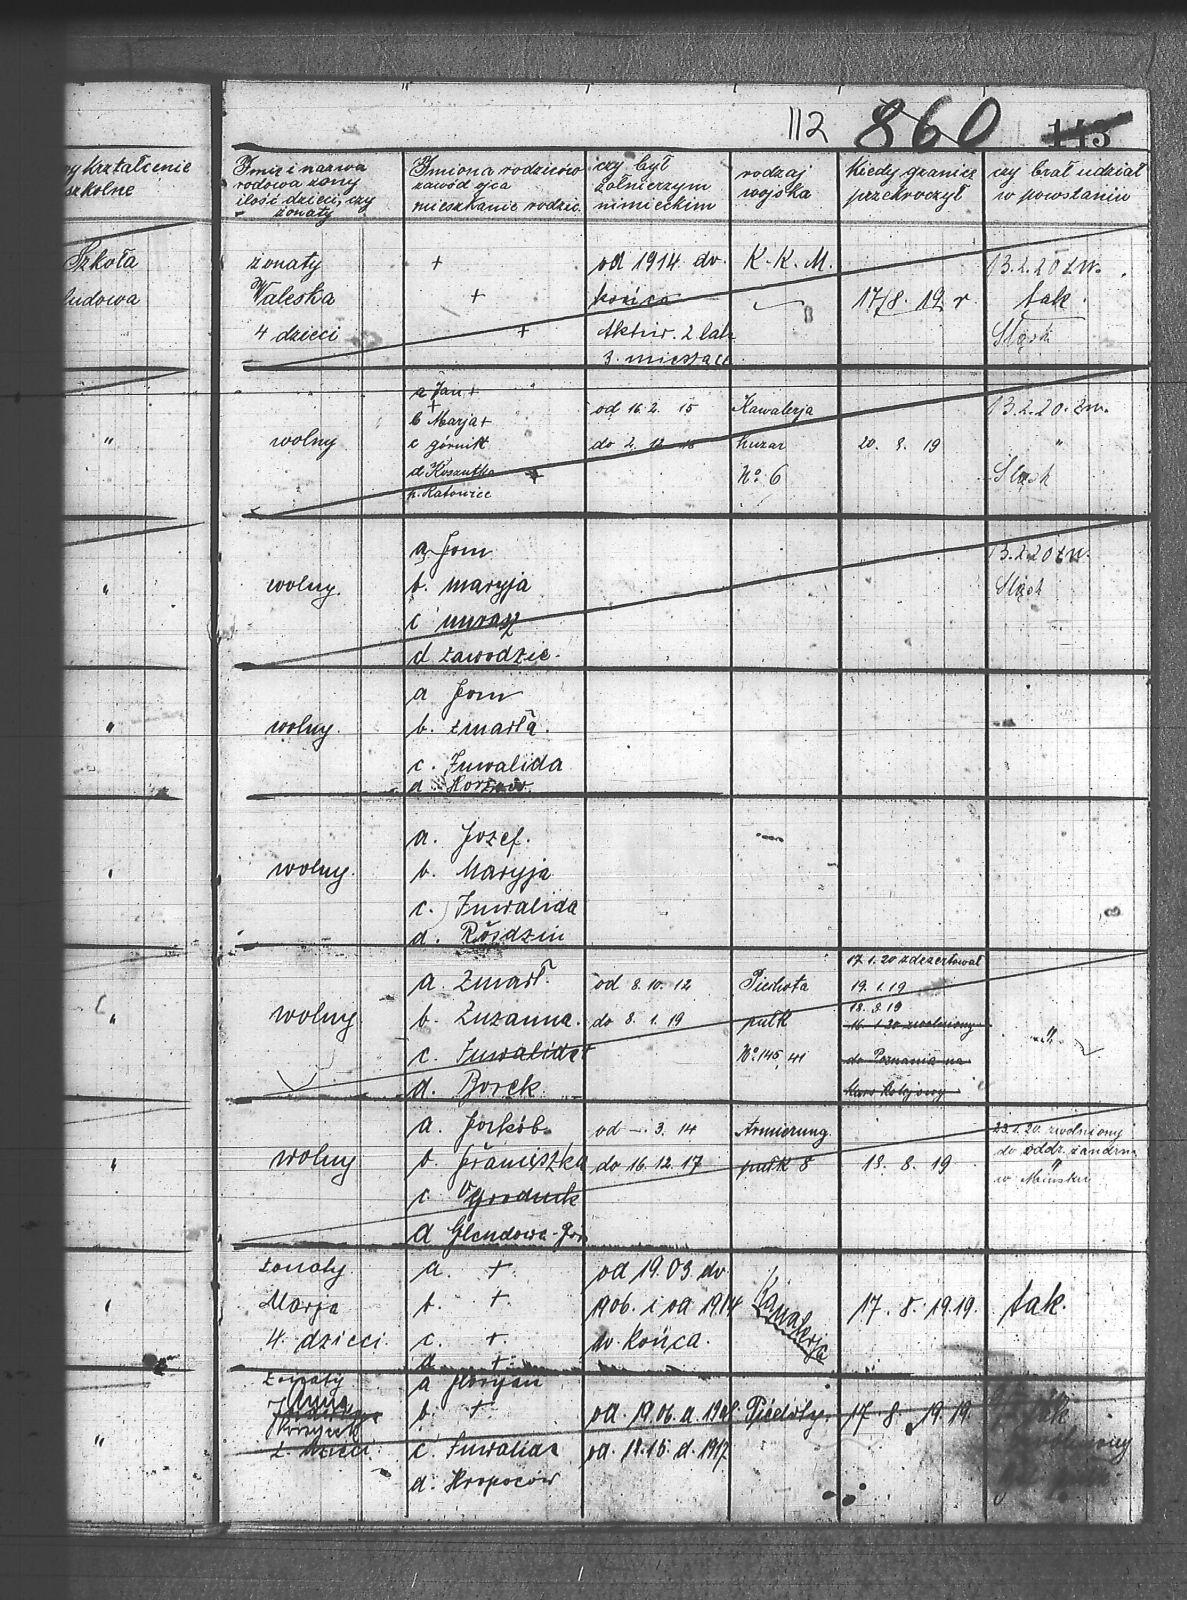 112 860 113
wykształcenie
szkolne
Imię i nazwa
rodowa żony
ilość dzieci, czy
żonaty
Imiona rodziców
zawód ojca
mieszkanie rodzic.
czy był
żołnierzym
nimieckim
rodzaj
wojska
Kiedy granicę
przekroczył
czy brał udział
w powstaniu
Szkoła
ludowa
żonaty
Waleska
4 dzieci
+
+
+
od 1914 do
końca
Aktiw. 2 lata
3. miesiące
K. K. M.
17/8. 19 r
13.2.20 zw.
tak.
Śląsk
"
wolny
a Jan +
+
b Marja +
c górnik
d Koszutka +
p. Katowice
od 16.2. 15
do 2. 12. 18
Kawalerja
huzar
No. 6
20. 8. 19
13.2.20. zw.
"
Śląsk
"
wolny.
a. Jom
b. maryja
c muraz
d zawodzie.
13.2.20 zw.
Śląsk
"
wolny.
a Jom
b. zmarła.
c. Inwalida
d.
wolny.
a. Jozef.
b. Maryja
c. Inwalida
d. Rósdzin
"
wolny
a. Zmarł.
b. Zuzanna.
c. Inwalida
d. Borek
od 8. 10. 12
do 8. 1. 19
Piechota
pułk
No. 145, 41
17.1.20 zdezertował
19.1.19
18.8.19
16. 1.20 zwolniony
do Poznania na
Kurs Kolejowy
"
"
wolny
a. Jorkób.
b. Franciszka
c Ogrodnik
d
od — 3. 14
do 16.12.17
Armierung
pułk 8
18. 8. 19
23.1.20. zwolniony
do oddz. żandrm
w Mińsku
żonaty
Marja
4. dzieci.
a. +
b. +
c. +
d +
od 19.03. do
1906. i od 1914
do końca.
Kawalerja
17. 8. 1919.
tak.
"
żonaty
Anna
2 dzieci.
a Florjan
b. +
c. Inwalida
d. Kropaców
od. 1906. d 1908.
od 18.15. d. 1917
Piechoty.
17. 8. 1919.
tak